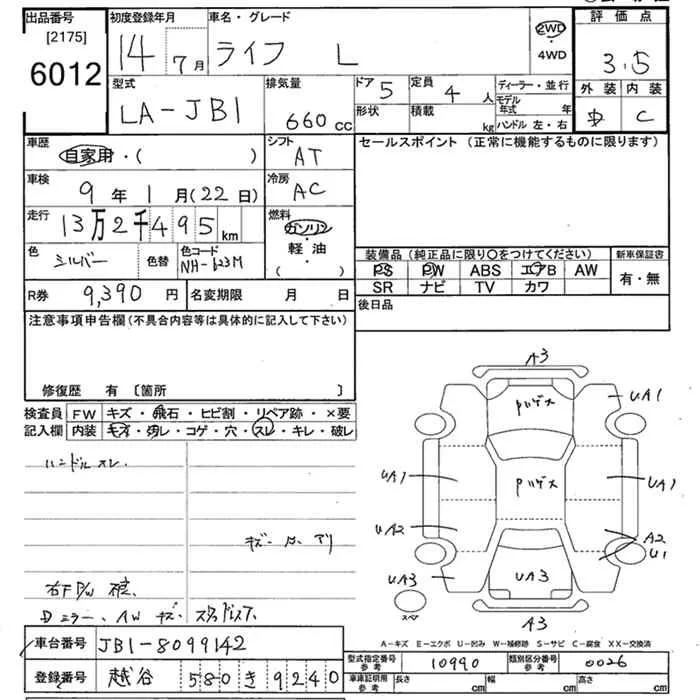 出品番号
[2175]
6012
初度登録年月
14年7月
車名・グレード
ライフ L
2WD
・
4WD
評価点
3.5
外装 内装
D C
型式
LA-JB1
排気量
660 cc
ドア 5
定員 4 人
形状
積載 kg
ディーラー・並行
モデル年式 年
ハンドル 左・右
車歴
自家用・( )
シフト
AT
セールスポイント (正常に機能するものに限ります)
車検
9年1月(22日)
冷房
AC
走行
13万2千495km
燃料
ガソリン
軽・油
( )
色
シルバー
色替
色コード
NH-623M
装備品(純正品に限り○をつけてください)
PS PW ABS エアB AW
SR ナビ TV カワ
新車保証書
有・無
R券 9,390 円
名変期限 月 日
後日品
注意事項申告欄(不具合内容等は具体的に記入して下さい)
修復歴 有 〔箇所 〕
検査員
記入欄
FW キズ・飛石・ヒビ割・リペア跡・×要
内装 キズ・汚レ・コゲ・穴・スレ・キレ・破レ
ハンドルスレ
右F P/W
Dミラー、AWキズ
A3
Pハゲス
UA1
UA1
Pハゲス
UA1
UA2
A2
U1
UA3
UA3
スペア
A3
A-キズ E-エクボ U-凹み W-補修跡 S-サビ C-腐食 XX-交換済
車台番号 JB1-8099142
登録番号 越谷 580 き 9240
型式指定番号
参考
10990
類別区分番号
参考
0026
車庫証明用
参考
長さ cm 幅 cm 高さ cm